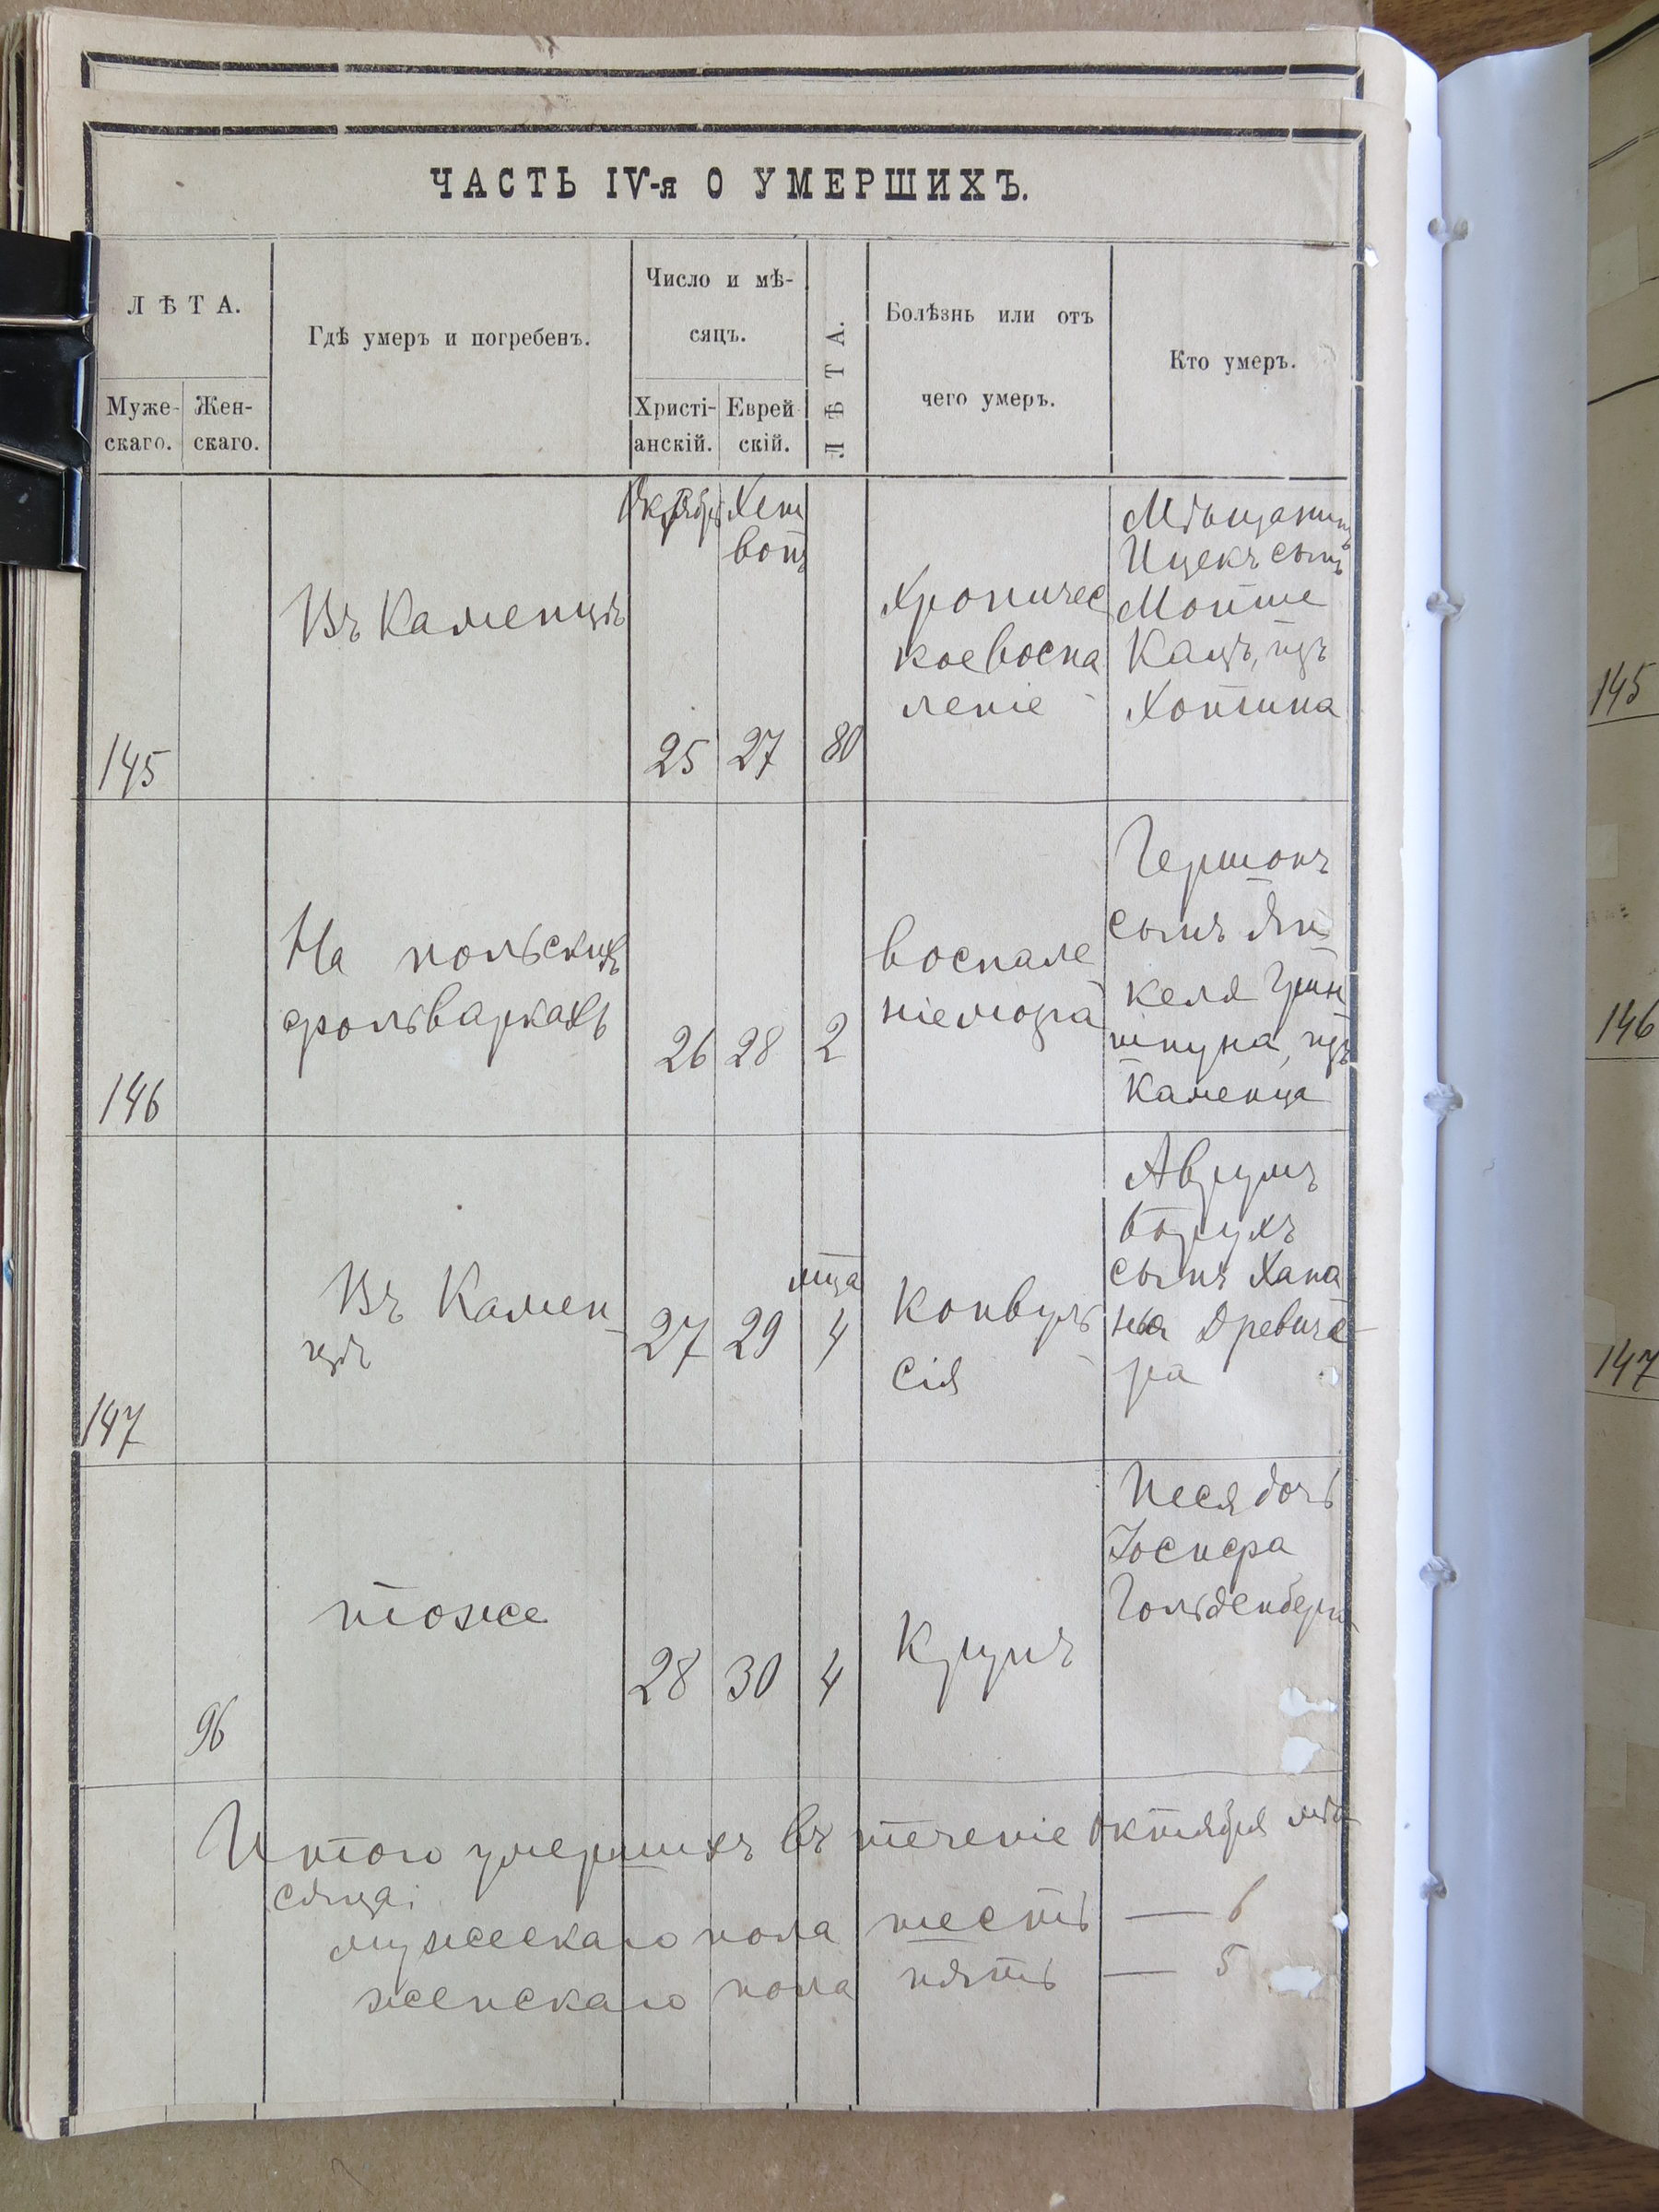 ЧАСТЬ IV-я О УМЕРШИХЪ.
ЛѢТА.
Муже-
скаго.
Жен-
скаго.
Гдѣ умеръ и погребенъ.
Число и мѣ-
сяцъ.
Христі-
анскій.
Еврей
скій.
ЛѢТА.
Болѣзнь или отъ
чего умеръ.
Кто умеръ.
Октября
Хеш
вонъ
145
Въ Каменцѣ
25
27
80
Хроничес
кое воспа
леніе
Мѣщанинъ
Ицекъ сынъ
Мойше
Кацъ, изъ
Хотина
146
На польскихъ
фольваркахъ
26
28
2
воспале
ніе мозга
Гершонъ
сынъ Ян
келя Грин
шпуна, изъ
Каменца
147
Въ Камен
цѣ
27
29
мца
4
Конвуль
сія
Аврумъ
Борухъ
сынъ Хана
на Древиче
ра
96
тоже
28
30
4
Крупъ
Песя дочь
Іосифа
Гольденберга
Итого умершихъ въ теченіе Октября мѣ
сяца:
мужескаго пола шесть — 6
женскаго пола пять — 5
145
146
147